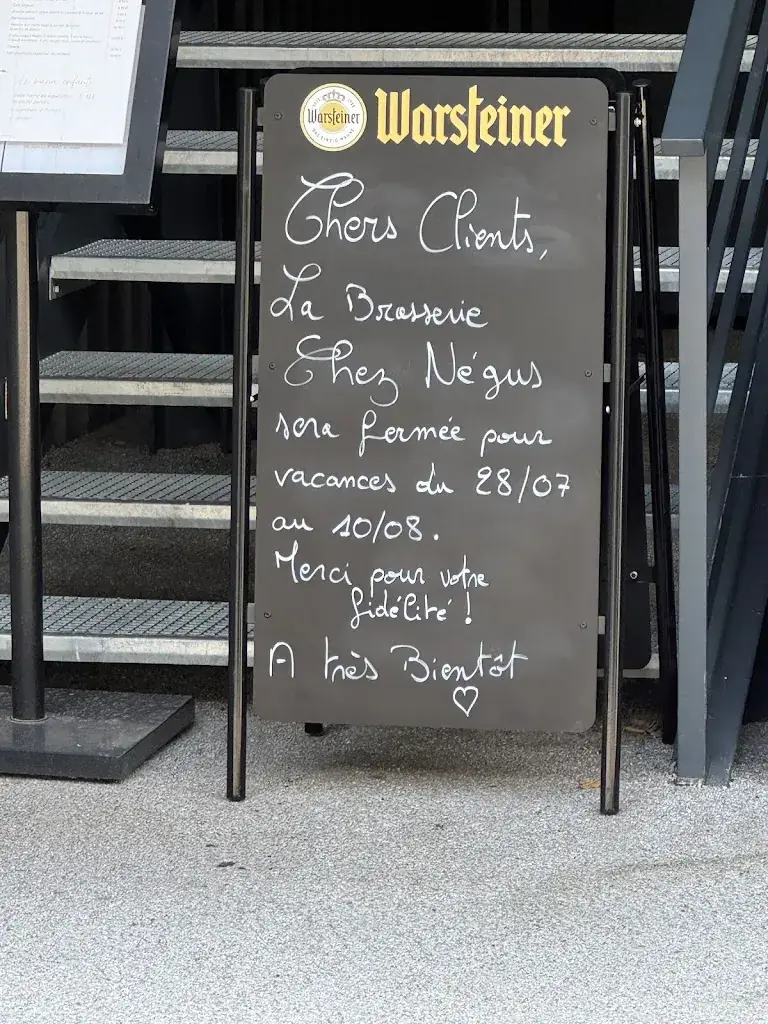 Warsteiner
Warsteiner
Chers Clients,
La Brasserie
Chez Négus
sera fermée pour
vacances du 28/07
au 10/08.
Merci pour votre
fidélité !
A très Bientôt
♡